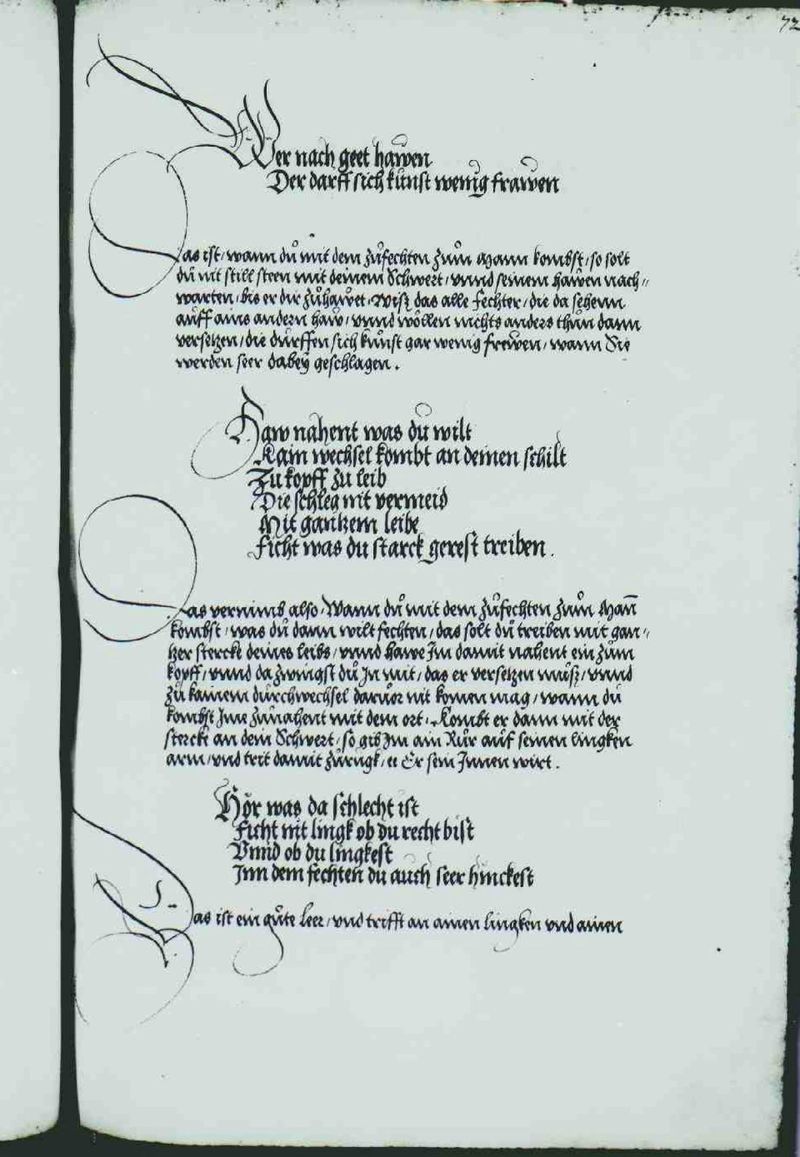 72
Wer nach geet hawen
Der darff sich kunst wenig frawen
Das ist / wann dů mit dem zůfechten zům Mann kombst / so solt
dů nit still steen mit deinem Schwert / vnnd seinem hawen nach=
warten / bis er dir zůhawet. Wisz das alle fechter / die da sehenn
auff ains andern haw / vnnd wöllen nichts anders thůn dann
versetzen / die dürffen sich kůnst gar wenig frewen / wann Sie
werden seer dabeÿ geschlagen.
Haw nahent was dů wilt
Kain wechsel kombt an deinen schilt
Zu kopff zu leib
Die schleg nit vermeid
Mit gantzem leibe
Ficht was du starck gerest treiben.
Das vernimb also. Wann dů mit dem zůfechten zům Man̄
kombst / was dů dann wilt fechten / das solt dů treiben mit gan=
tzer stercke deines leibs / vnnd hawe Im damit nahent ein zům
kopff / vnnd da zwingst dů In mit / das er versetzen můsz / vnnd
zů kainem durchwechsel daruor nit komen mag / wann du
kombst Ime zůnahent mit dem ort. Kombt er dann mit der
stercke an dein Schwert / so gib Im ain Růr auf seinen lingken
arm / vnd trit damit zůrugk / ee Er sein Innen wirt.
Hör was da schlecht ist
Ficht nit lingk ob du recht bist
Vnnd ob du lingkest
Inn dem fechten du auch seer hinckest
Das ist ein gůte leer / vnd trifft an ainen lingken vnd ainen